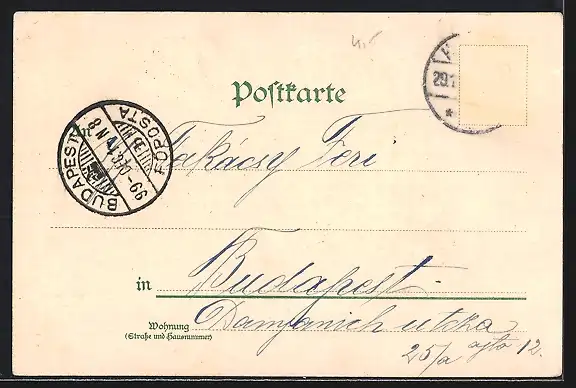 Postkarte
BUDAPEST
FŐPOSTA
29.1
Takácsy Feri
in Budapest
Wohnung
(Straße und Hausnummer)
Damjanich utcza
25/a ajto 12.